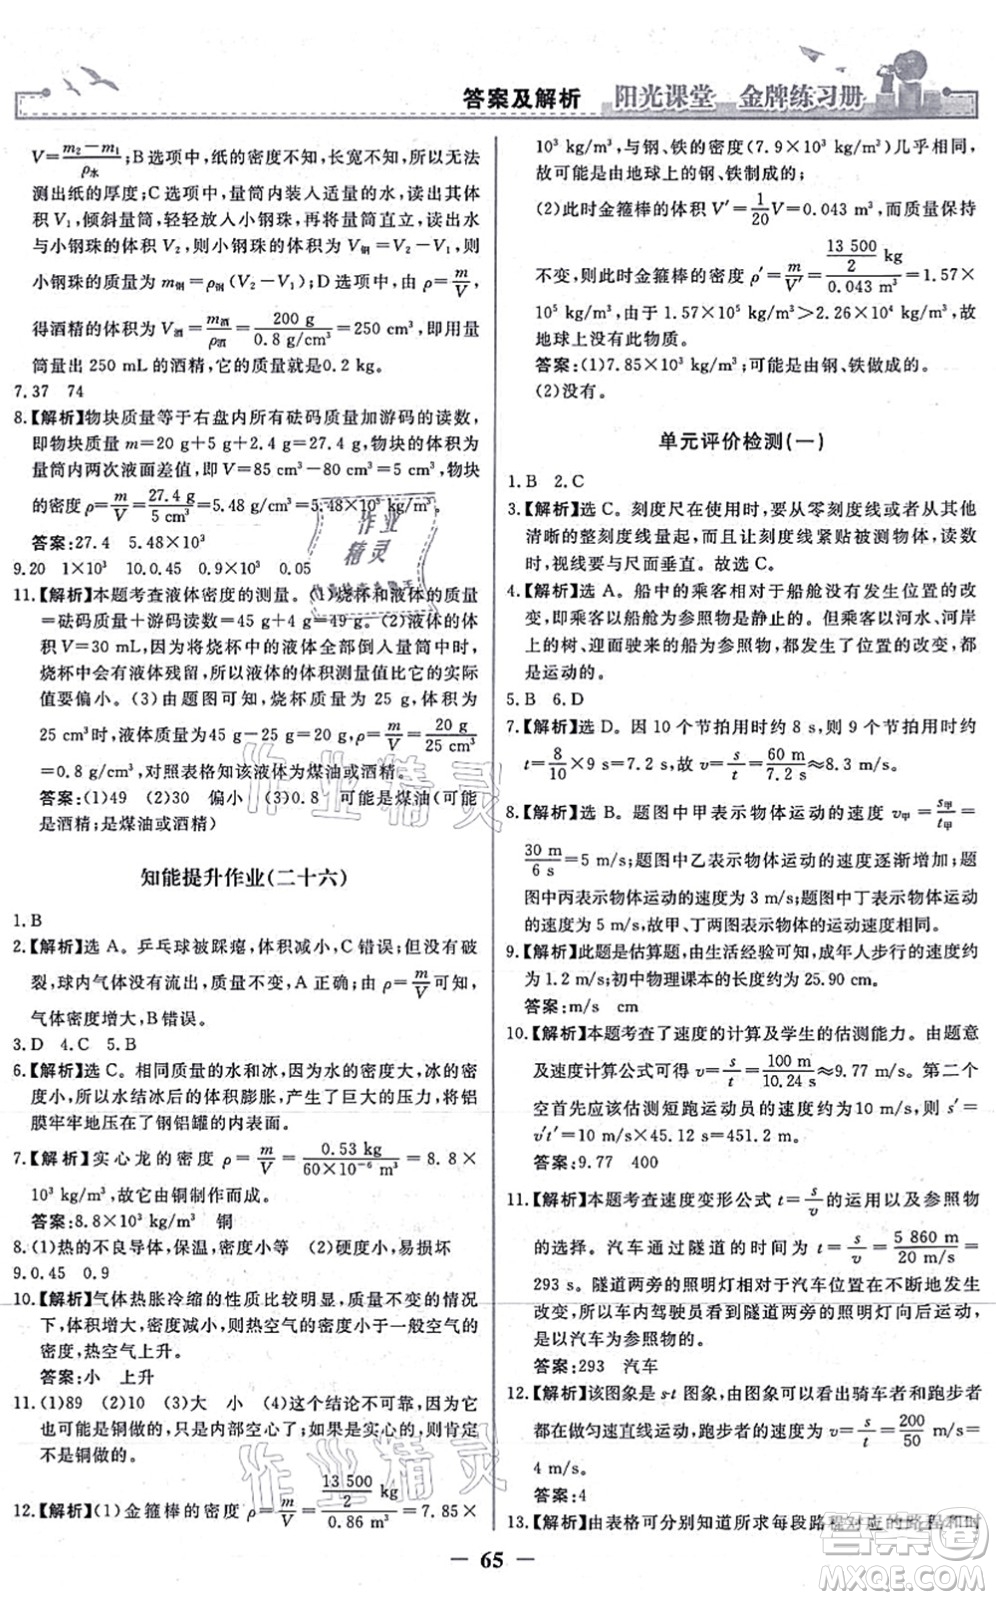 答案及解析 阳光课堂 金牌练习册
V=(m₂−m₁)/ρ水;B选项中,纸的密度不知,长宽不知,所以无法
测出纸的厚度;C选项中,量筒内装入适量的水,读出其体
积V₁,倾斜量筒,轻轻放入小钢珠,再将量筒直立,读出水
与小钢珠的体积V₂,则小钢珠的体积V钢=V₂−V₁,则
小钢珠的质量为m钢=ρ钢(V₂−V₁);D选项中,由ρ=m/V
得酒精的体积为V酒=m酒/ρ酒=200 g/0.8 g/cm³=250 cm³,用
量筒量出250 mL的酒精,它的质量就是0.2 kg。
7.37 74
8.【解析】物块质量等于右盘内所有砝码质量加游码的读数,
即物块质量m=20 g+5 g+2.4 g=27.4 g,物块的体积为
量筒内两次液面差值,即V=85 cm³−80 cm³=5 cm³,物块
的密度ρ=m/V=27.4 g/5 cm³=5.48 g/cm³=5.48×10³ kg/m³。
答案:27.4 5.48×10³
9.20 1×10³ 10.0.45 0.9×10³ 0.05
11.【解析】本题考查液体密度的测量。(1)烧杯和液体的质量
=砝码质量+游码读数=45 g+4 g=49 g。(2)液体的体
积V=30 mL,因为将烧杯中的液体全部倒入量筒中时烧
杯中会有液体残留,所以液体的体积测量值比它的实际
值要偏小。(3)由题图可知,烧杯质量为25 g,体积为
25 cm³时,液体的质量为45 g−25 g=20 g,ρ=m/V=20 g/25 cm³
=0.8 g/cm³,对照表格知该液体为煤油或酒精。
答案:(1)49 (2)30 偏小 (3)0.8 可能是煤油(可能
是酒精;是煤油或酒精)
知能提升作业(二十六)
1.B
2.【解析】选A。乒乓球被踩瘪,体积减小,C错误;但没有破
裂,球内气体没有外漏,质量不变,A正确;由ρ=m/V可知,
气体密度增大,B错误。
3.D 4.C 5.B
6.【解析】选C。相同质量的水和冰,因为水的密度比冰的
大,所以水结冰后的体积膨胀,产生了巨大的力量,将铝
膜牢牢地压在了钢铝罐的内表面。
7.【解析】实心龙的密度ρ=m/V=0.53 kg/60×10⁻⁶ m³=8.8×
10³ kg/m³,故它由铜制作而成。
答案:8.8×10³ kg/m³ 铜
8.(1)热的不良导体,保温,密度小等 (2)硬度小,易损坏
9.0.45 0.9
10.【解析】气体热胀冷缩的性质比较明显,质量不变的情况
下,体积增大,密度减小,则热空气的密度小于冷空气的密
度,热空气上升。
答案:小 上升
11.(1)89 (2)10 (3)大 小 (4)这个结论不可靠,因为它
也可能是铜做的,只是内部空心了;如果是实心的,则肯定
不是铜做的。
12.【解析】(1)金箍棒的密度ρ=m/V=(13 500/2 kg)/0.86 m³=7.85×
10³ kg/m³,与钢、铁的密度(7.9×10³ kg/m³)几乎相同,
故可能是由地球上的钢、铁制成的;
(2)此时金箍棒的体积V′=1/20V=0.043 m³,而质量保持
不变,则此时金箍棒的密度ρ′=m/V′=(13 500/2 kg)/0.043 m³=1.57×
10⁵ kg/m³,由于1.57×10⁵ kg/m³>2.26×10⁴ kg/m³。故
地球上没有此物质。
答案:(1)7.85×10³ kg/m³ 可能由钢、铁做成的。
(2)没有。
单元评价检测(一)
1.B 2.C
3.【解析】选C。刻度尺在放置时,要从零刻度线或某一
清晰的整刻度线量起,而且让刻度线紧贴被测物体,读数
时,视线要与尺面垂直。故选C。
4.【解析】选A。船中的乘客以对于船舱没有发生位置的改
变,所以乘客以船舱为参照物是静止的。但乘客以河水、河岸
上的树、迎面驶来的船为参照物,都发生了位置的改变,都
是运动的。
5.B 6.D
7.【解析】选D。因10个节拍用时约8 s,则9个节拍用时约
t=8/10×9 s=7.2 s,故v=s/t=60 m/7.2 s≈8.3 m/s。
8.【解析】选B。题图中甲表示物体运动的速度v甲=s甲/t甲=
30 m/6 s=5 m/s;题图中乙表示物体运动的速度逐渐增加;题
图中丙表示物体运动的速度为3 m/s;题图中丁表示物体运动
的速度为5 m/s,故甲、丁两图表示物体的运动速度相同。
9.【解析】此题是估算题,由生活经验可知,成年人步行的速度约
为1.2 m/s;初中物理课本的长度约为25.90 cm。
答案:m/s cm
10.【解析】本题考查了速度的计算及学生的估测能力。由题意
及速度计算公式可知v=s/t=100 m/10.24 s≈9.77 m/s。第二个
空首先应该估测短跑运动员的速度约为10 m/s,则s′=
v′t′=10 m/s×45.12 s=451.2 m。
答案:9.77 400
11.【解析】本题考查速度变形公式t=s/v的运用以及参照物
的选择。汽车通过隧道的时间为t=s/v=5 860 m/20 m/s=
293 s。隧道两旁的照明灯相对于汽车位置在不断地发生
改变,所以车内驾驶员看到隧道两旁的照明灯向后运动,
是以汽车为参照物的。
答案:293 汽车
12.【解析】该图象是s-t图象,由图象可以看出骑车者和跑步者
都在做匀速直线运动,跑步者的速度为v=s/t=200/50 m/s=
4 m/s。
答案:4
13.【解析】由表格可分别知道所求每段路程对应的路程和时
— 65 —
作业精灵